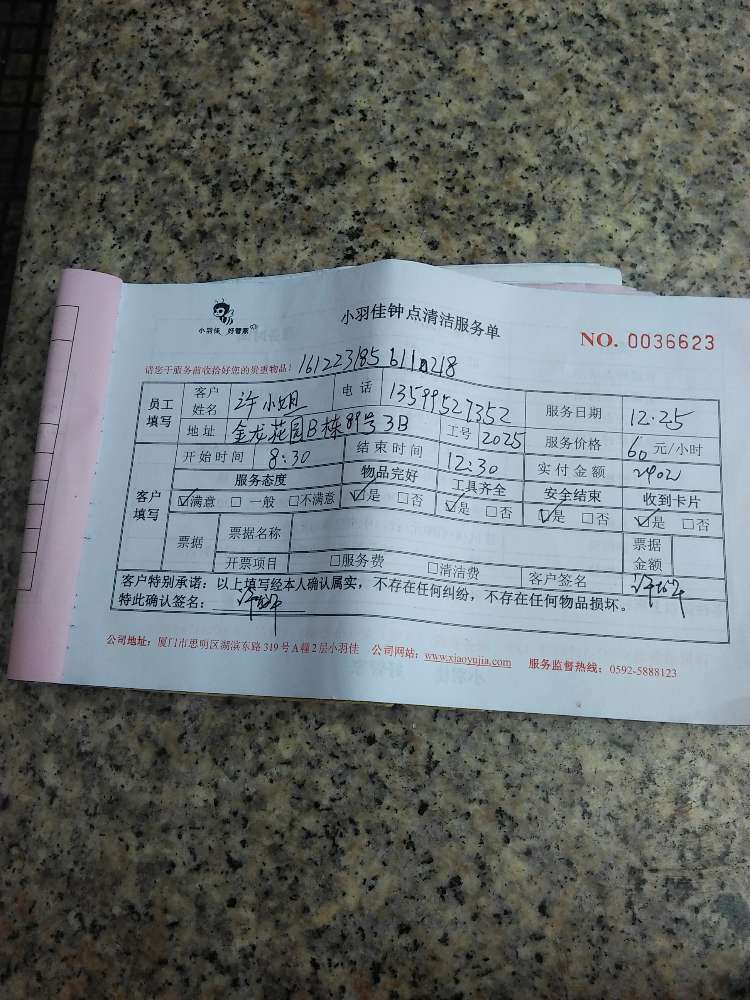 小羽佳 好管家
小羽佳钟点清洁服务单
NO. 0036623
请您于服务前收拾好您的贵重物品!
员工填写 客户姓名 许小姐 电话 13599527352 服务日期 12.25
地址 金龙花园B栋89号3B 工号 2025 服务价格 60 元/小时
客户填写 开始时间 8:30 结束时间 12:30 实付金额
服务态度 物品完好 工具齐全 安全结束 收到卡片
☑满意 □一般 □不满意 ☑是 □否 ☑是 □否 ☑是 □否 ☑是 □否
票据 票据名称 票据金额
开票项目 □服务费 □清洁费 客户签名
客户特别承诺:以上填写经本人确认属实,不存在任何纠纷,不存在任何物品损坏。
特此确认签名:
公司地址:厦门市思明区湖滨东路319号A幢2层小羽佳 公司网站:www.xiaoyujia.com 服务监督热线:0592-5888123